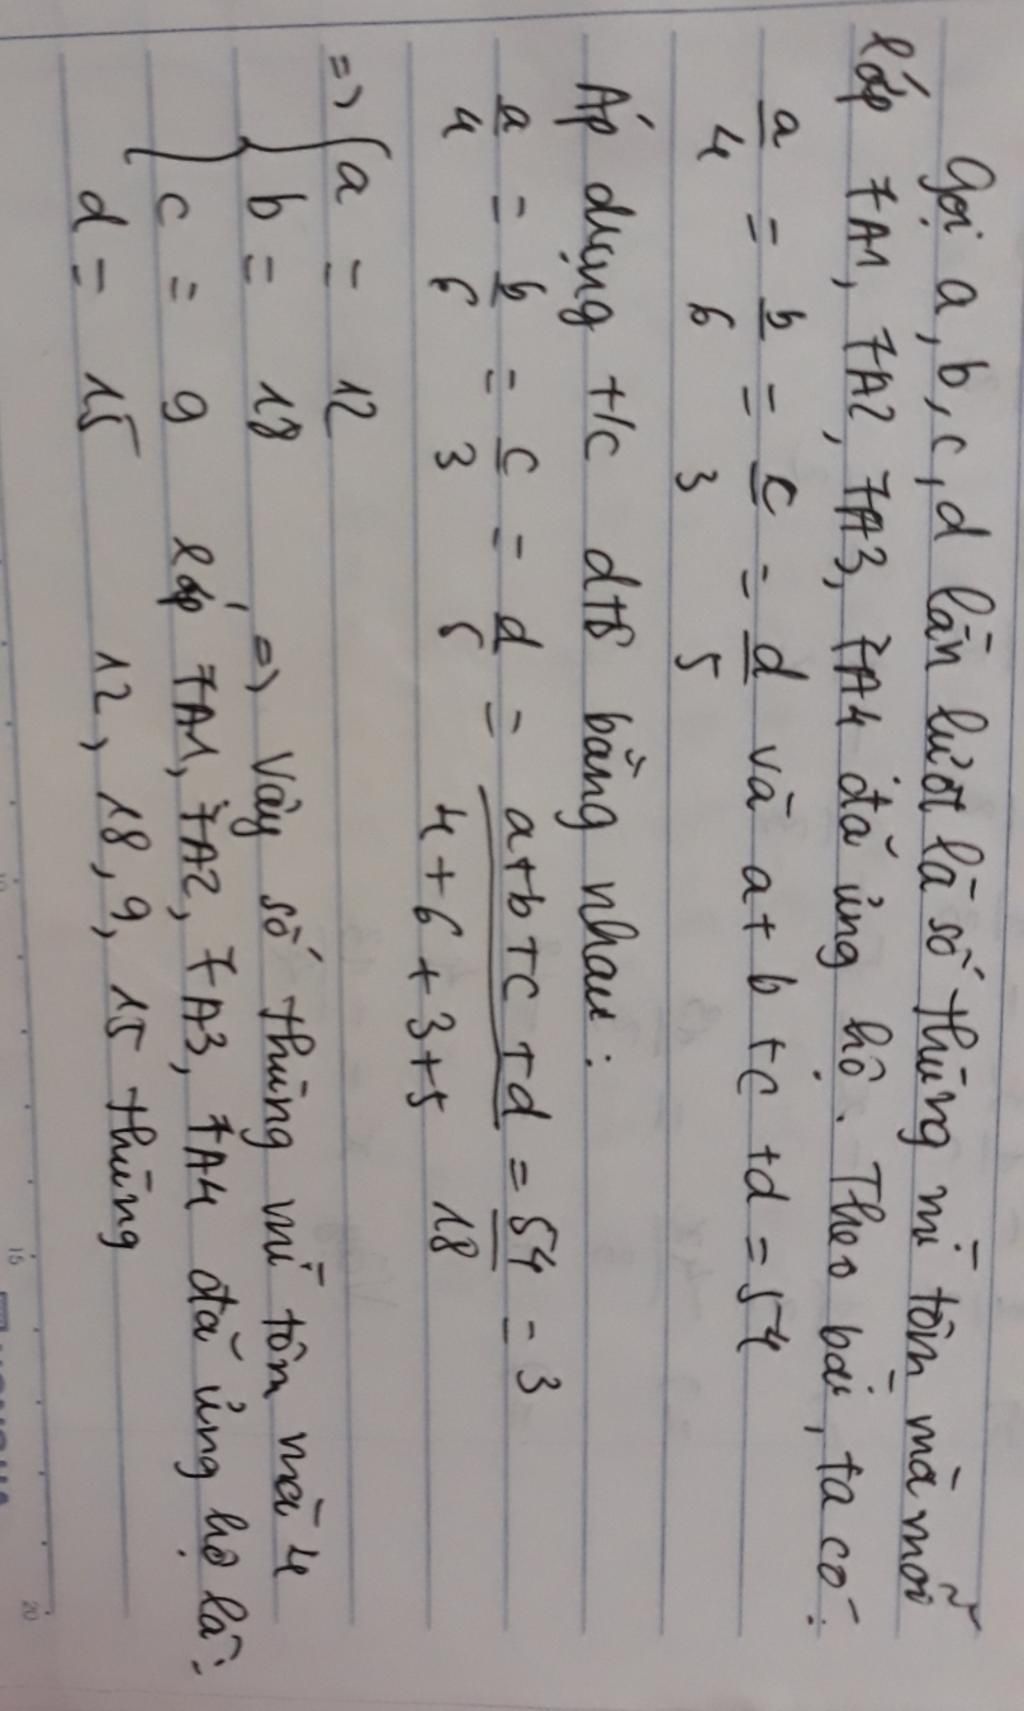 Gọi a, b, c, d lần lượt là số thùng mì tôm mà mỗi
lớp 7A1, 7A2, 7A3, 7A4 đã ủng hộ. Theo bài, ta có:
a/4 = b/6 = c/3 = d/5 và a + b + c + d = 54
Áp dụng t/c dtS bằng nhau:
a/4 = b/6 = c/3 = d/5 = a+b+c+d/4+6+3+5 = 54/18 = 3
=> { a = 12
b = 18
c = 9
d = 15
=> Vậy số thùng mì tôm mà 4
lớp 7A1, 7A2, 7A3, 7A4 đã ủng hộ là:
12, 18, 9, 15 thùng
15
20